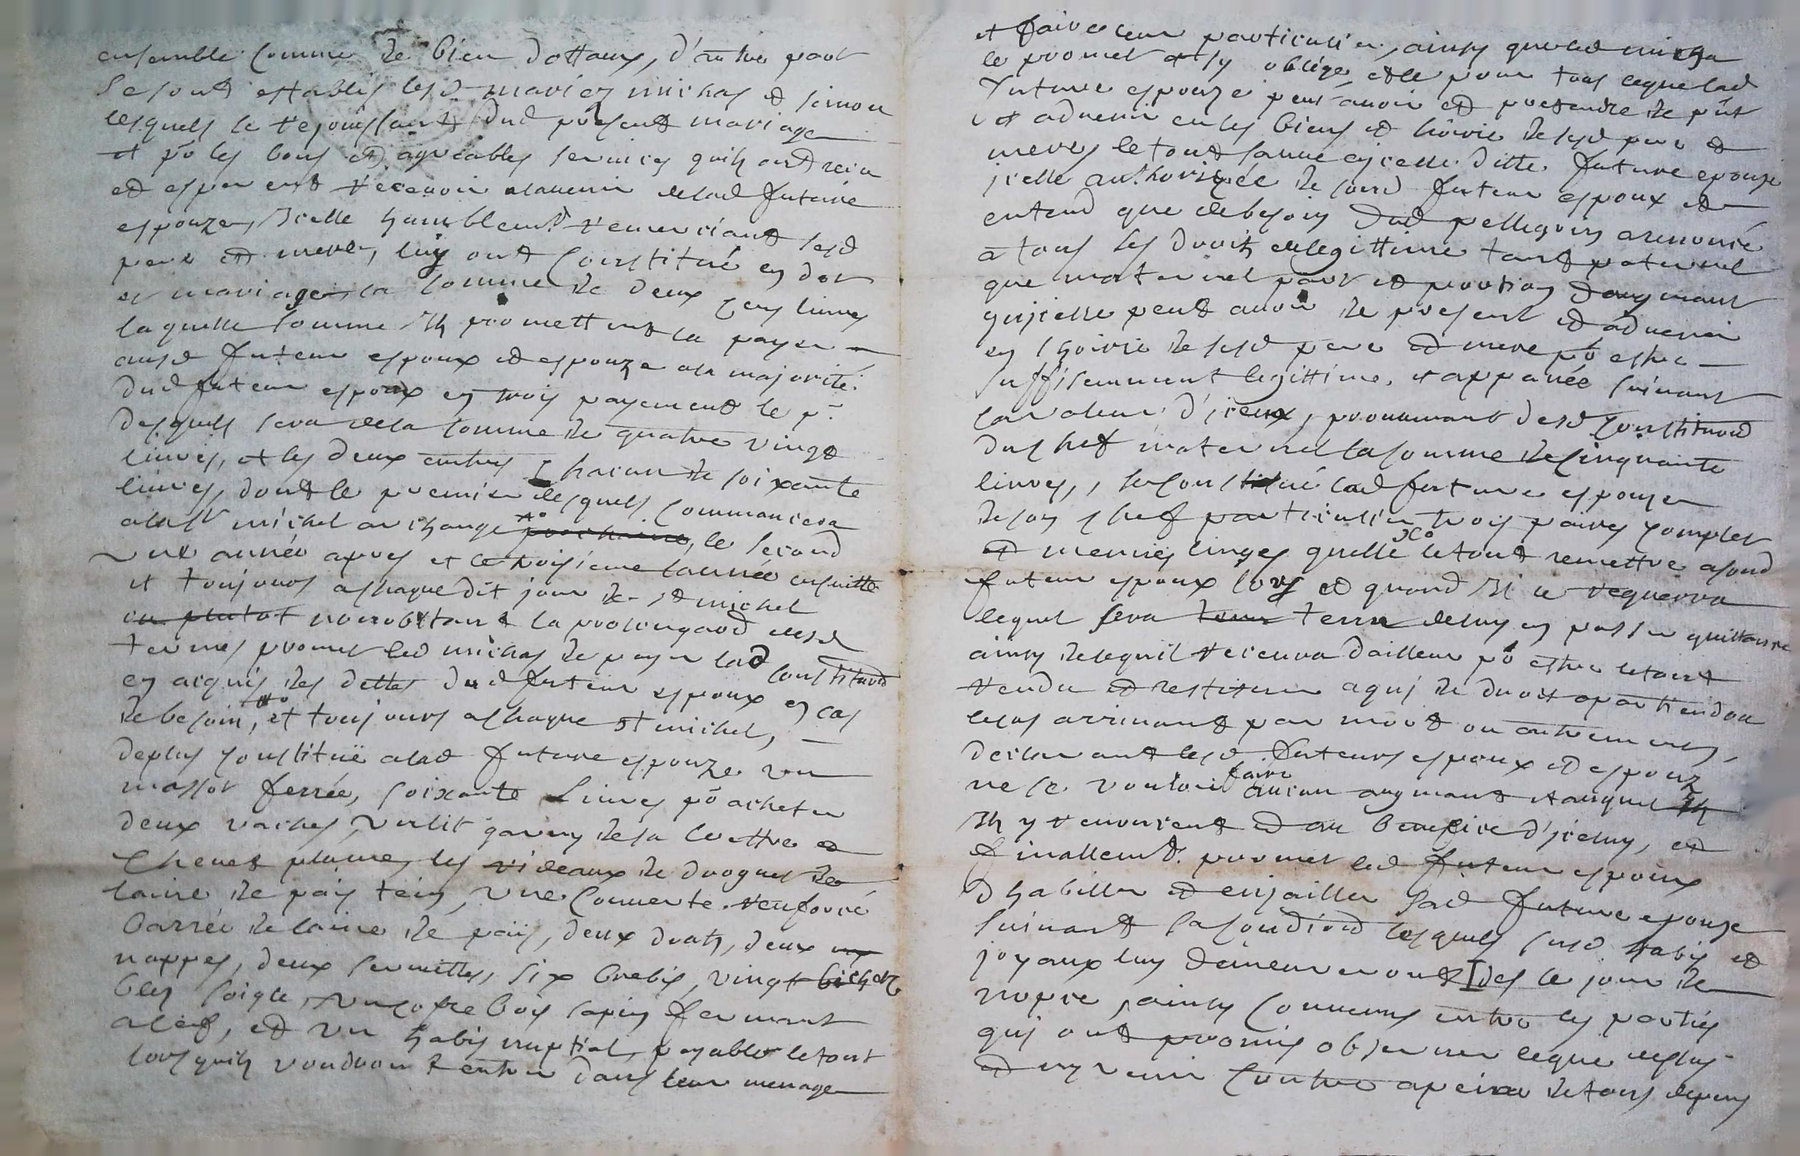 ensemble comme de bien dottaux, d'autre part
se sont establis lesd mariés michas et simon
lesquels se rejouissants dud present mariage
et po les bons et agreables services quils ont receu
et esperent recevoir aladvenir delad future
espouze, Icelle humblemt remerciant sesd
pere et mere, luy ont constitué en dot
et mariage la somme de deux cens livres
laquelle somme Ils promettent la payer
ausd futeur espoux et espouze ala majorité
dud futeur espoux en trois payements le pr
desquels sera dela somme de quatre vingt
livres, et les deux autres chacun de soixante
livres, dont le premier desquels commancera
alast michel archange prochaine, le second
une année apres et le troisieme lannée ensuitte
et toujours achaque dit jour de st michel
ou plutot nonobstant la prolongaon desd
termes promet led michas de payer lad constituon
en acquis des dettes dud futeur espoux en cas
de besoin, et toujours achaque st michel,
deplus constitue alad future espouze un
massot ferrée, soixante livres po acheter
deux vaches, un lit garny de sa couttre
chevet plume, les rideaux de droguet de
laine de païs tein, une couverte renforcé
barrée de laine de païs, deux draps, deux
nappes, deux serviettes, six brebis, vingt bichets
bled soigle, un cofre bois sapin fermant
aclef, et un habis nuptial, payable letout
lors quils voudront entrer dans leur menage
et faire leur particulier, ainsy que led michas
le promet et sy oblige, et le pour tous ceque lad
future espouze peut avoir et pretendre de pnt
et advenir en les biens et hoirie de sesd pere et
meres le tout sauve ajcelle ditte future epouze
jcelle authorizée de sond futeur espoux et
entend que debesoin dud pelleguin a renoncé
a tous ses droits en legittime tant paternel
que maternel part et portion daugmant
qujcelle peut avoir de present et advenir
en lhoirie de sesd pere et mere po estre
suffisemment legittime, et appanée suivant
la valeur d'jceux, provenant desd constituon
du chef maternel la somme de cinquante
livres, se constitué lad future espouze
deson chef particulier trois paires complet
et menues linges quelle letout remettre asond
futeur espoux lors et quand Il le requerra
lequel sera tenu deluy en passer quittance
ainsy de ce quil recevra dailleur po estre letout
rendu et restitué aquj de droit apartiendra
lecas arrivant par mort ou autrement,
declarant lesd futeurs espoux et espouze
ne se vouloir faire aucun augmant et auquel
Ils y renoncent et au benefice d'jceluy, et
finallemt promet led futeur espoux
dhabiller et enjailler sad future epouze
suivant sa condiõn lesquels susd habis et
joyaux luy demeureront des le jour de
nopce, ainsy convenu entre les parties
quj ont promis observer ceque dessus
et ny venir contre apeine de tous depens